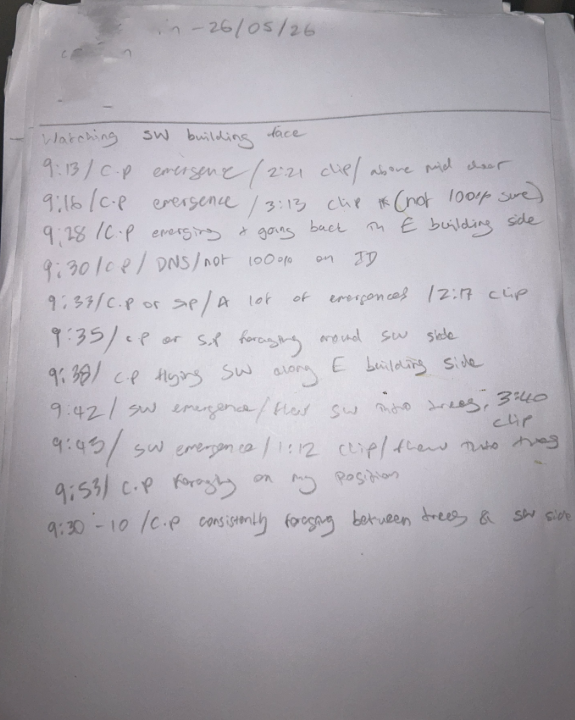 in - 26/05/26
Watching SW building face
9:13/C.P emergence/2:21 clip/above mid door
9:16/C.P emergence/3:13 clip * (not 100% sure)
9:28/C.P emerging + going back in E building side
9:30/CP/DNS/not 100% on ID
9:33/C.P or SP/A lot of emergences/2:17 clip
9:35/CP or S.P foraging around SW side
9:38/C.P flying SW along E building side
9:42/SW emergence/flew SW into trees, 3:40
clip
9:45/SW emergence/1:12 clip/flew into trees
9:53/C.P foraging on my position
9:30-10/C.P consistently foraging between trees & SW side